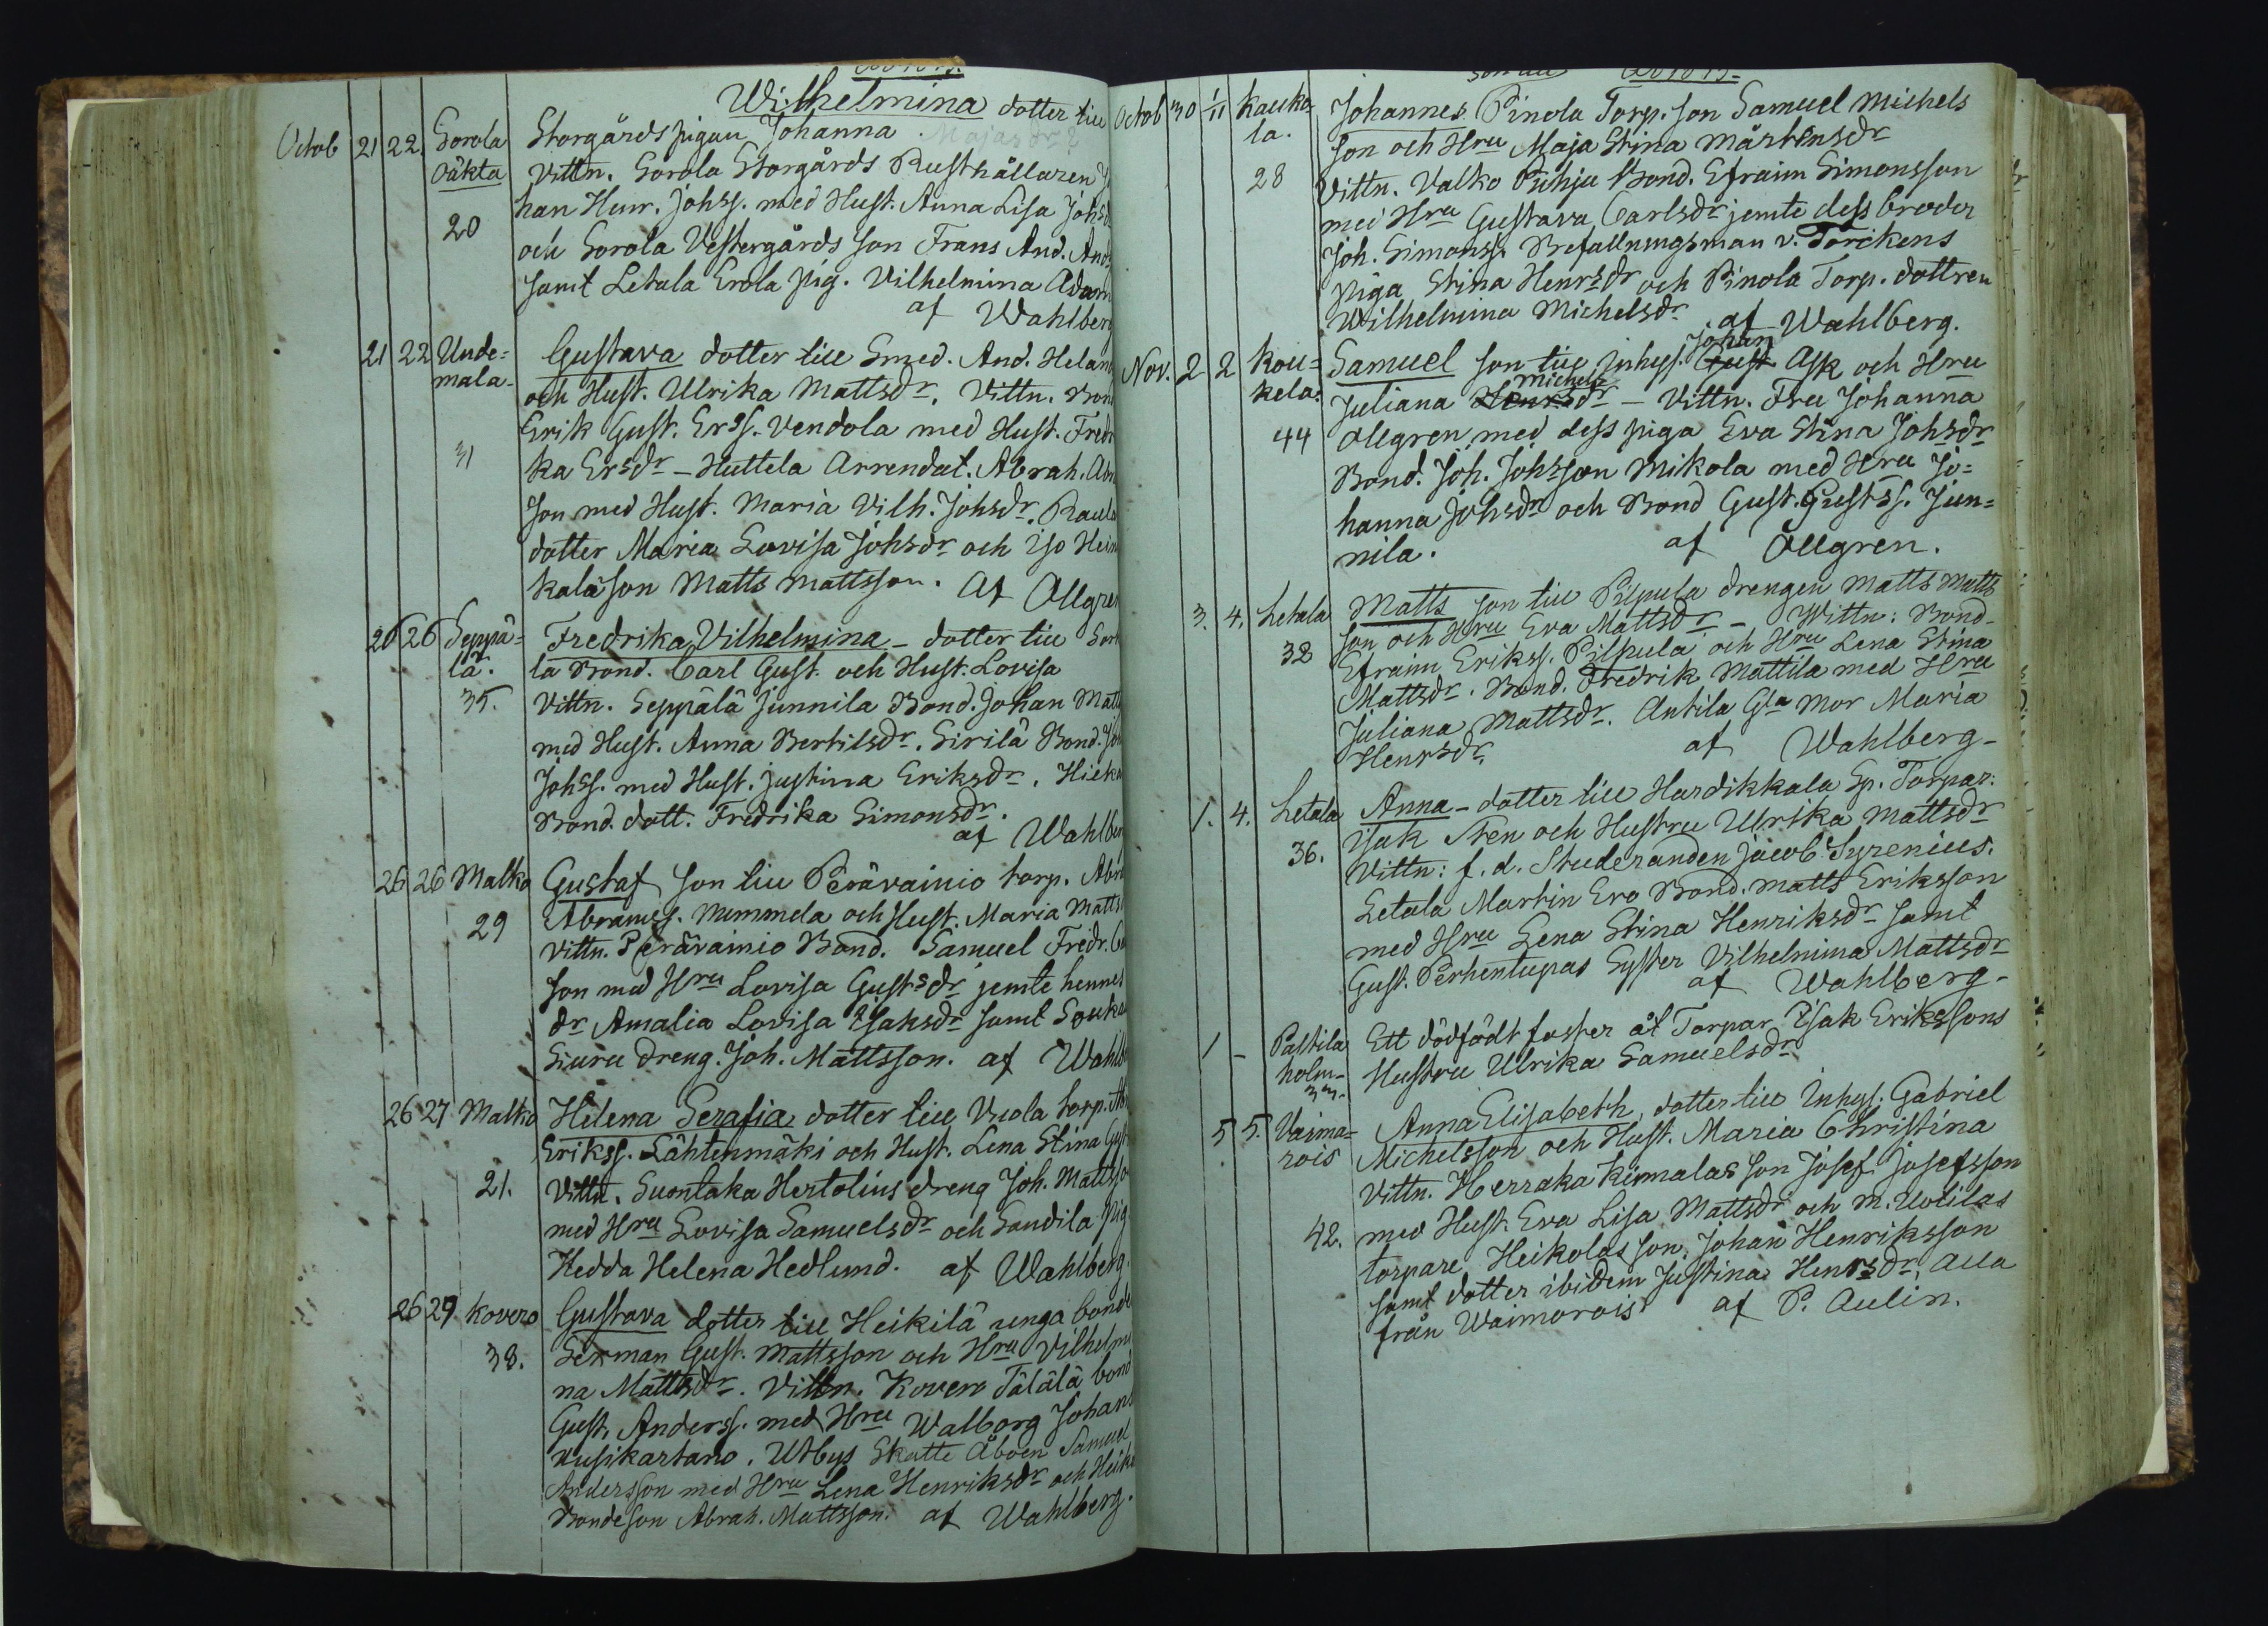 Wilhelmina dotter till
Octob 21 22. Sorola Storgårds pigan Johanna. Majasdr?
oäkta Vittn. Sorola Storgårds Rusthållaren
20 han Henr. Johss. med Hust. Anna Lisa Johsd
och Sorola Vestergårds son Frans And. And
samt Letala Erola pig. Vilhelmina Adam
af Wahlberg
21 22 Unde= Gustava dotter till Smed. And. Helan
mala- och Hust. Ulrika Mattsdr. Vittn. Bon
Erik Gust. Erss. Vendola med Hust. Fred
31 ka Ersdr - Huttela Arrendat. Abrah. Ab
son med Hust. Maria Vilh. Johsdr. Paul
dotter Maria Lovisa Johsdr och Iso Hein
kala son Matts Mattsson. Af Ollgren
26 26 Seppä= Fredrika Vilhelmina - dotter till Sor
lä. la Bond. Carl Gust. och Hust. Lovisa
35. Vittn. Seppälä Junnila Bond. Johan Matt
med Hust. Anna Bertilsdr. Sirilä Bond. Joh
Johss. med Hust. Justina Eriksdr. Hieka
Bond. dott. Fredrika Simonsdr.
af Wahlber
26 26 Malko Gustaf son till Perävainio torp. Abr
29 Abramss. Mimmela och Hust. Maria Matts
Vittn. Perävainio Bond. Samuel Fredr.
son med Hru Lovisa Gustsdr jemte hennes
dr Amalia Lovisa Isaksdr samt Souka
Siuru dreng. Joh. Mattsson. af Wahlb
26 27 Malko Helena Serafia dotter till Vuola torp. Ab
Erikss. Lähtenmäki och Hust. Lena Stina Gust
21. Vittn. Suontaka Hertolius dreng Joh. Mattsso
med Hru Lovisa Samuelsdr och Sandila pig
Hedda Helena Hedlund. af Wahlberg.
26 29 Kovero Gustava dotter till Heikilä unga bonde
38. Sexman Gust. Mattsson och Hru Vilhelmi
na Mattsdr. Vittn. Kovero Tälälä bond
Gust. Anderss. med Hru Walborg Johans
Kusikartano. Utbys Skatte Åboen Samuel
Andersson med Hru Lena Henriksdr och Heik
Bondeson Abrah. Mattsson. af Wahlberg.
Octob 30 1/11 Kauko= Johannes Pinola Torp. son Samuel Michels
la. son och Hru Maja Stina Mårtensdr
28 Vittn. Valko Puhju Bond. Efraim Simonsson
med Hru Gustava Carlsdr jemte dess broder
Joh. Simonss. Befallningsman v. Torckens
piga Stina Henrsdr och Pinola Torp. dottren
Wilhelmina Michelsdr. af Wahlberg.
Johan
Nov. 2 2 Kou= Samuel son till Inhys. Gust Ask och Hru
Michels
kela. Juliana Henrsdr - Vittn. Fru Johanna
44 Ollgren, med dess piga Eva Stina Johsdr
Bond. Joh. Johsson Mikola med Hru Jo=
hanna Johsdr och Bond Gust. Gustss. Jun=
nila. af Ollgren.
3. 4. Letala Matts son till Pilpula drengen Matts Matts
38 son och Hru Eva Mattsdr - Wittn: Bond-
Efraim Erikss. Pilpula och Hru Lena Stina
Mattsdr. Bond. Fredrik Mattila med Hru
Juliana Mattsdr. Antila Gla Mor Maria
Henrsdr. af Wahlberg-
1. 4. Letala Anna - dotter till Hardikkala Sp. Torpar.
36. Isak Sten och Hustru Ulrika Mattsdr
Vittn: f. d. Studeranden Jacob Syrenius.
Letala Martin Ero Bond. Matts Eriksson
med Hru Lena Stina Henriksdr samt
Gust. Perhentupas Syster Vilhelmina Mattsdr
af Wahlberg-
1 - Paltila Ett dödfödt foster åt Torpar Isak Erikssons
holm- Hustru Ulrika Samuelsdr
33.
5 5. Vaima= Anna Elisabeth, dotter till Inhys. Gabriel
rois Michelsson och Hust. Maria Christina
Vittn. Herraka Kinnalas son Josef Josefsson
42. med Hust. Eva Lisa Mattsdr och M. Uotilas
torpare Heikolas son, Johan Henriksson
samt dotter ibidem Justina Henrsdr, alla
från Waimorois af P. Aulin.